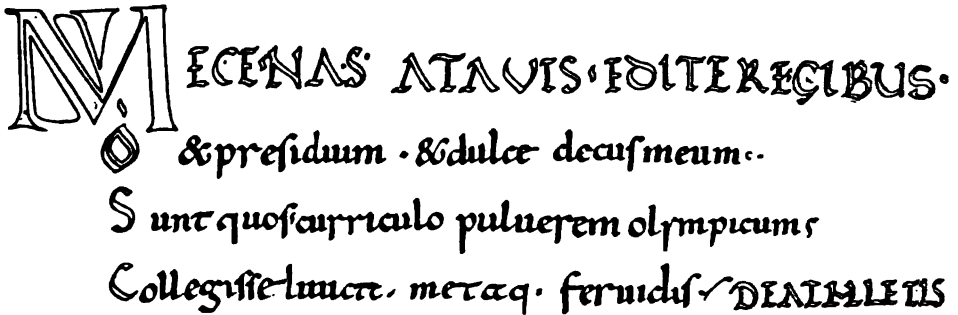 MECENAS· ATAVIS· EDITE REGIBUS·
O &presidium · &dulce decusmeum:·
Sunt quos curriculo puluerem olympicum;
Collegisse iuuat. metaq· feruidis